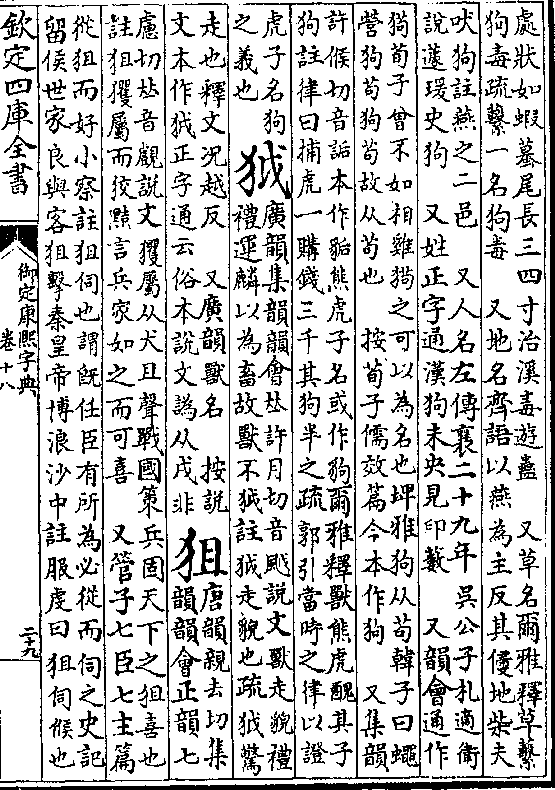 處狀如蝦蟇尾長三四寸治溪毒遊蠱　又草名爾雅釋草蘩
狗毒疏蘩一名狗毒　又地名齊語以燕為主反其侵地柴夫
吠狗註燕之二邑　又人名左傳襄二十九年吳公子札適衛
說蘧瑗史狗　又姓正字通漢狗未央見印藪　又韻會通作
㺃荀子曾不如相雞㺃之可以為名也埤雅狗从苟韓子曰蠅
營狗苟狗苟故从苟也　按荀子儒效篇今本作狗　又集韻
許候切音詬本作豿熊虎子名或作狗爾雅釋獸熊虎醜其子
狗註律曰捕虎一購錢三千其狗半之疏郭引當時之律以證
虎子名狗
之義也
狘
廣韻集韻韻會𠀤許月切音䬂說文獸走貌禮
禮運麟以為畜故獸不狘註狘走貌也疏狘驚
走也釋文況越反　又廣韻獸名　按說
文本作狘正字通云俗本說文譌从戌非
狙
唐韻親去切集
韻韻會正韻七
慮切𠀤音覷說文玃屬从犬且聲戰國策兵固天下之狙喜也
註狙玃屬而狡黠言兵家如之而可喜　又管子七臣七主篇
從狙而好小察註狙伺也謂旣任臣有所為必從而伺之史記
留侯世家良與客狙擊秦皇帝博浪沙中註服虔曰狙伺候也
欽定四庫全書
御定康熙字典
卷十八
二十九